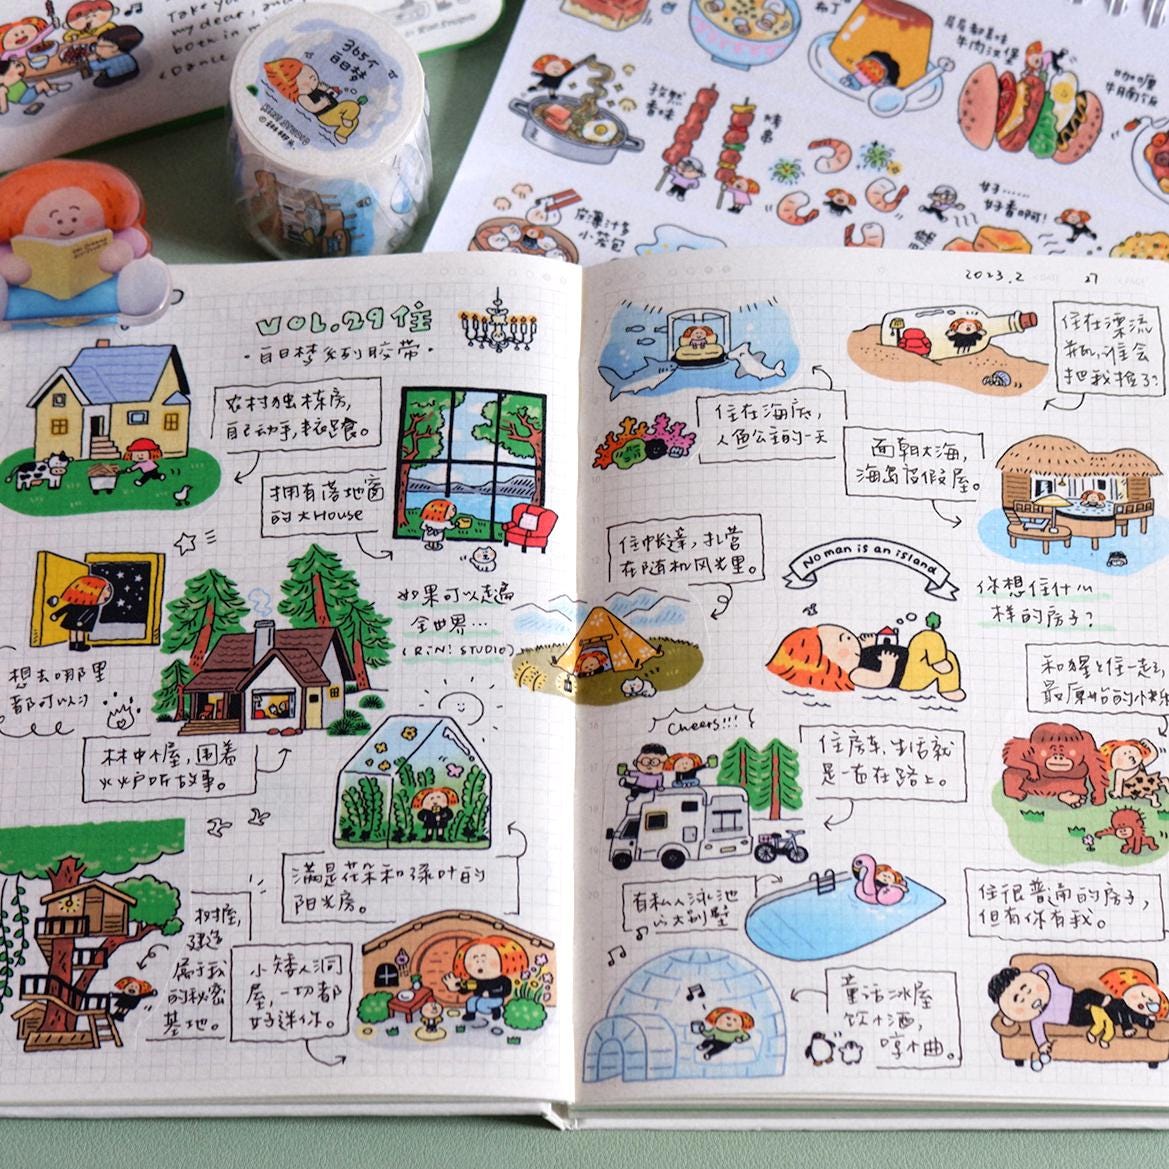 365个
白日梦
孜然
香味
烤
串
牛肉汉堡
咖喱
牛腩饭
皮薄汁多
小笼包
好……
好香啊!
2023.2
27
VOL.29 住
·白日梦系列胶带·
农村独栋房,
自己动手,丰衣足食。
拥有落地窗
的大House
如果可以走遍
全世界…
(RiN! STUDIO)
想去哪里
都可以
林中小屋,围着
火炉听故事。
满是花朵和绿叶的
阳光房。
树屋,
建造
属于我
的秘密
基地。
小矮人洞
屋,一切都
好迷你。
住在海底,
人鱼公主的一天
住在漂流
瓶,谁会
把我捡了?
面朝大海,
海岛度假屋。
住帐篷,扎营
在随机风光里。
No man is an island
你想住什么
样的房子?
和猩猩住一起
最原始的快乐
Cheers!!!
住房车,生活就
是一直在路上。
有私人泳池
的大别墅
住很普通的房子,
但有你有我。
童话冰屋
饮小酒,
哼小曲。